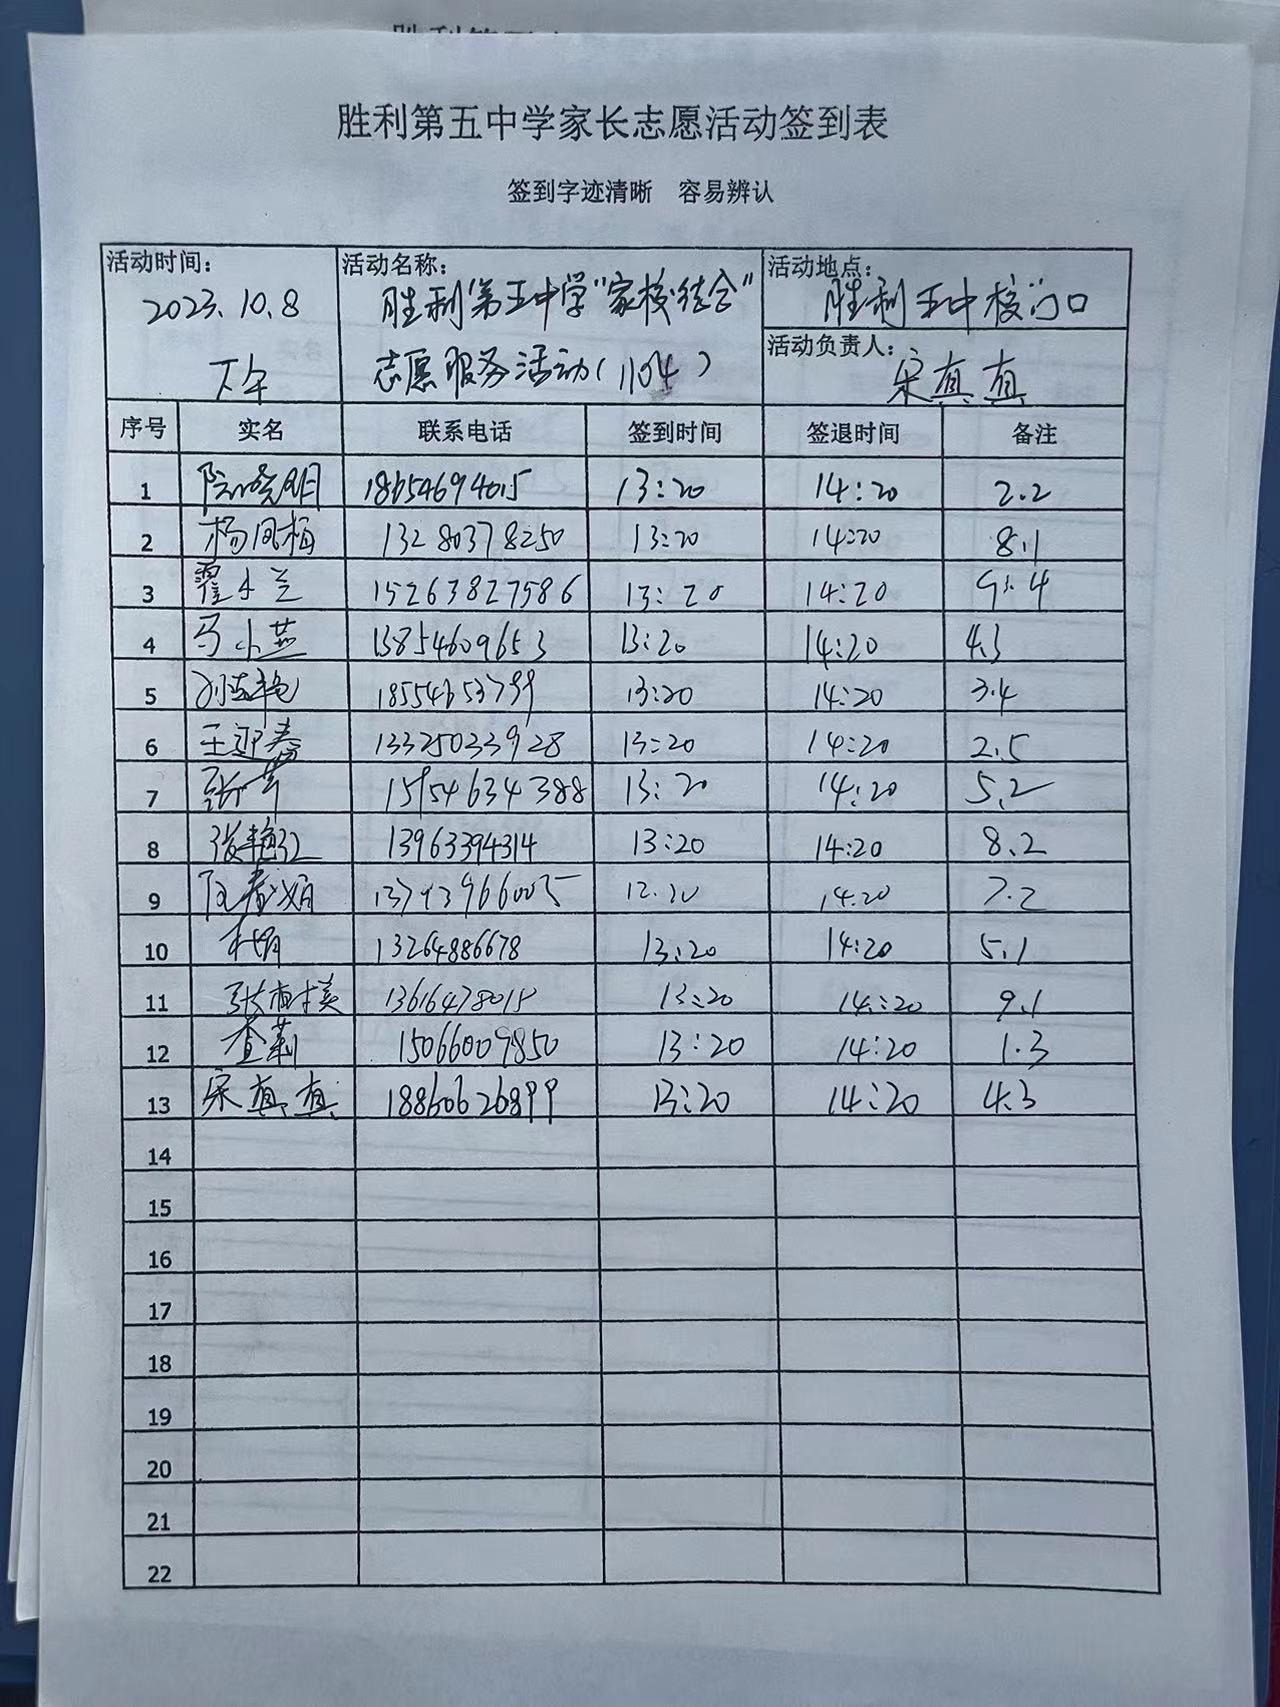 胜利第五中学家长志愿活动签到表
签到字迹清晰 容易辨认
活动时间: 2023.10.8 下午
活动名称: 胜利第五中学"家校结合"志愿服务活动(1104)
活动地点: 胜利五中校门口
活动负责人: 宋真真
序号 实名 联系电话 签到时间 签退时间 备注
1 18654694015 13:20 14:20 2.2
2 杨凤梅 13280378250 13:20 14:20 8.1
3 霍小兰 15263827586 13:20 14:20 9.4
4 马小燕 13854609653 13:20 14:20 4.3
5 刘艳 18554653799 13:20 14:20 3.4
6 王迎春 13325033928 13:20 14:20 2.5
7 张苹 15154634388 13:20 14:20 5.2
8 张艳红 13963394314 13:20 14:20 8.2
9 14:20 7.2
10 杜娟 13264886678 13:20 14:20 5.1
11 13616478015 13:20 14:20 9.1
12 查莉 15066009850 13:20 14:20 1.3
13 宋真真 18860626899 13:20 14:20 4.3
14
15
16
17
18
19
20
21
22